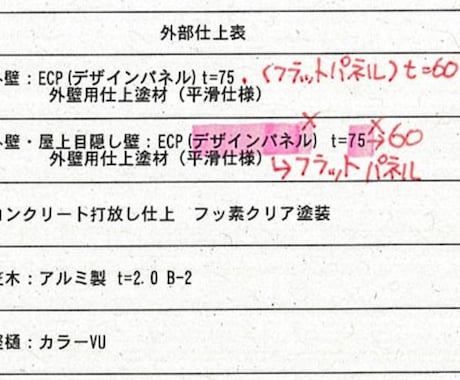 外部仕上表
壁：ECP(デザインパネル)t=75 . (フラットパネル) t=60
外壁用仕上塗材（平滑仕様）
壁・屋上目隠し壁：ECP(デザインパネル) t=75→60
外壁用仕上塗材（平滑仕様） ↳フラットパネル
コンクリート打放し仕上　フッ素クリア塗装
木：アルミ製 t=2.0 B-2
樋：カラーVU